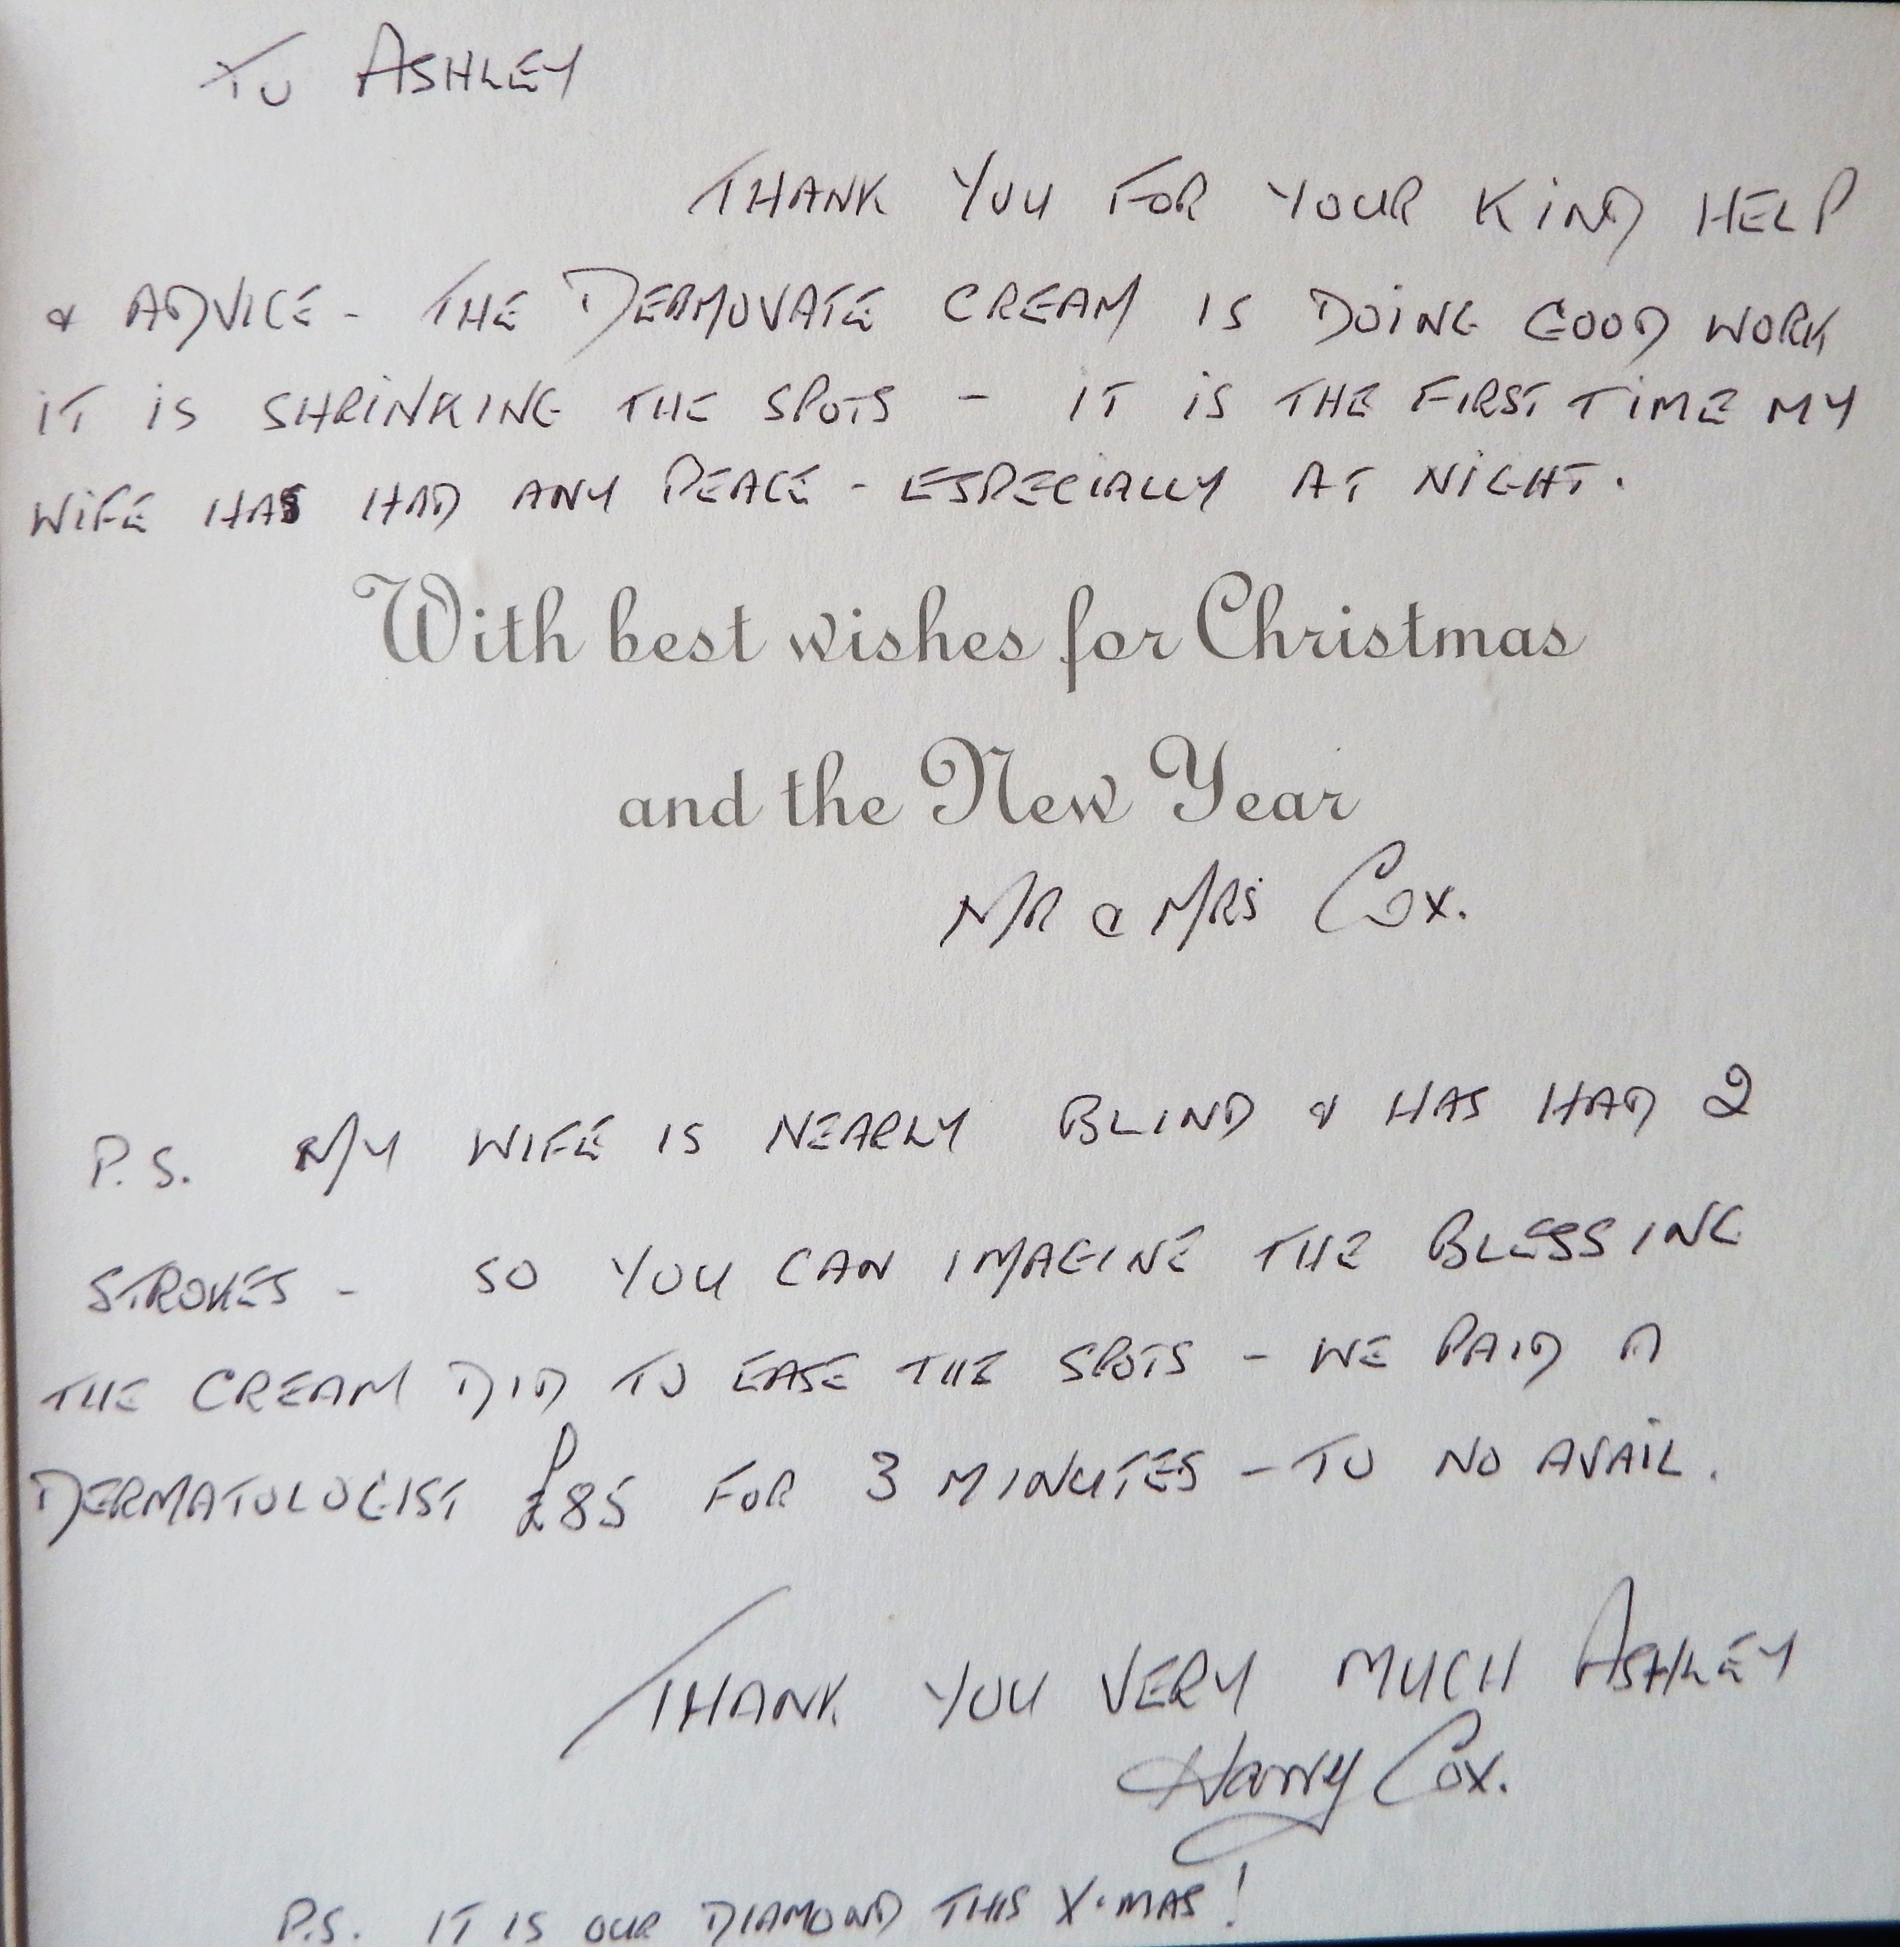 TO ASHLEY
THANK YOU FOR YOUR KIND HELP
& ADVICE - THE DERMOVATE CREAM IS DOING GOOD WORK
IT IS SHRINKING THE SPOTS - IT IS THE FIRST TIME MY
WIFE HAS HAD ANY PEACE - ESPECIALLY AT NIGHT.
With best wishes for Christmas
and the New Year
MR & MRS COX.
P.S. MY WIFE IS NEARLY BLIND & HAS HAD 2
STROKES - SO YOU CAN IMAGINE THE BLESSING
THE CREAM DID TO EASE THE SPOTS - WE PAID A
DERMATOLOGIST £85 FOR 3 MINUTES - TO NO AVAIL.
THANK YOU VERY MUCH ASHLEY
Harry Cox.
P.S. IT IS OUR DIAMOND THIS X.MAS!